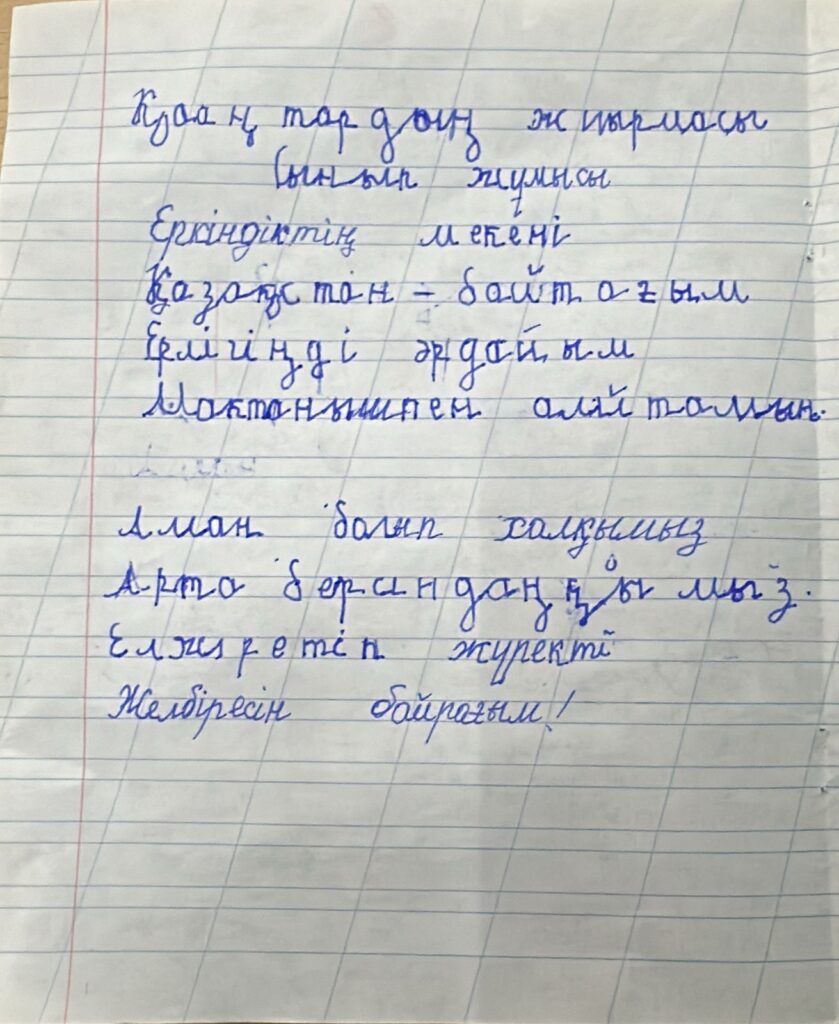 Қаңтардың жиырмасы
Сынып жұмысы
Еркіндіктің мекені
Қазақстан - байтағым
Ерлігіңді әрдайым
Мақтанышпен аляйтамын.
Аман болып халқымыз
Арта берсін даңқымыз.
Елжіретіп жүректі
Желбіресін байрағым!